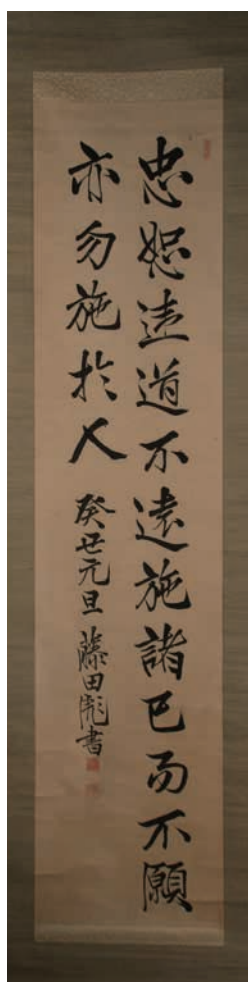 忠恕違道不遠施諸己而不願
亦勿施於人 癸丑元旦 藤田彪書